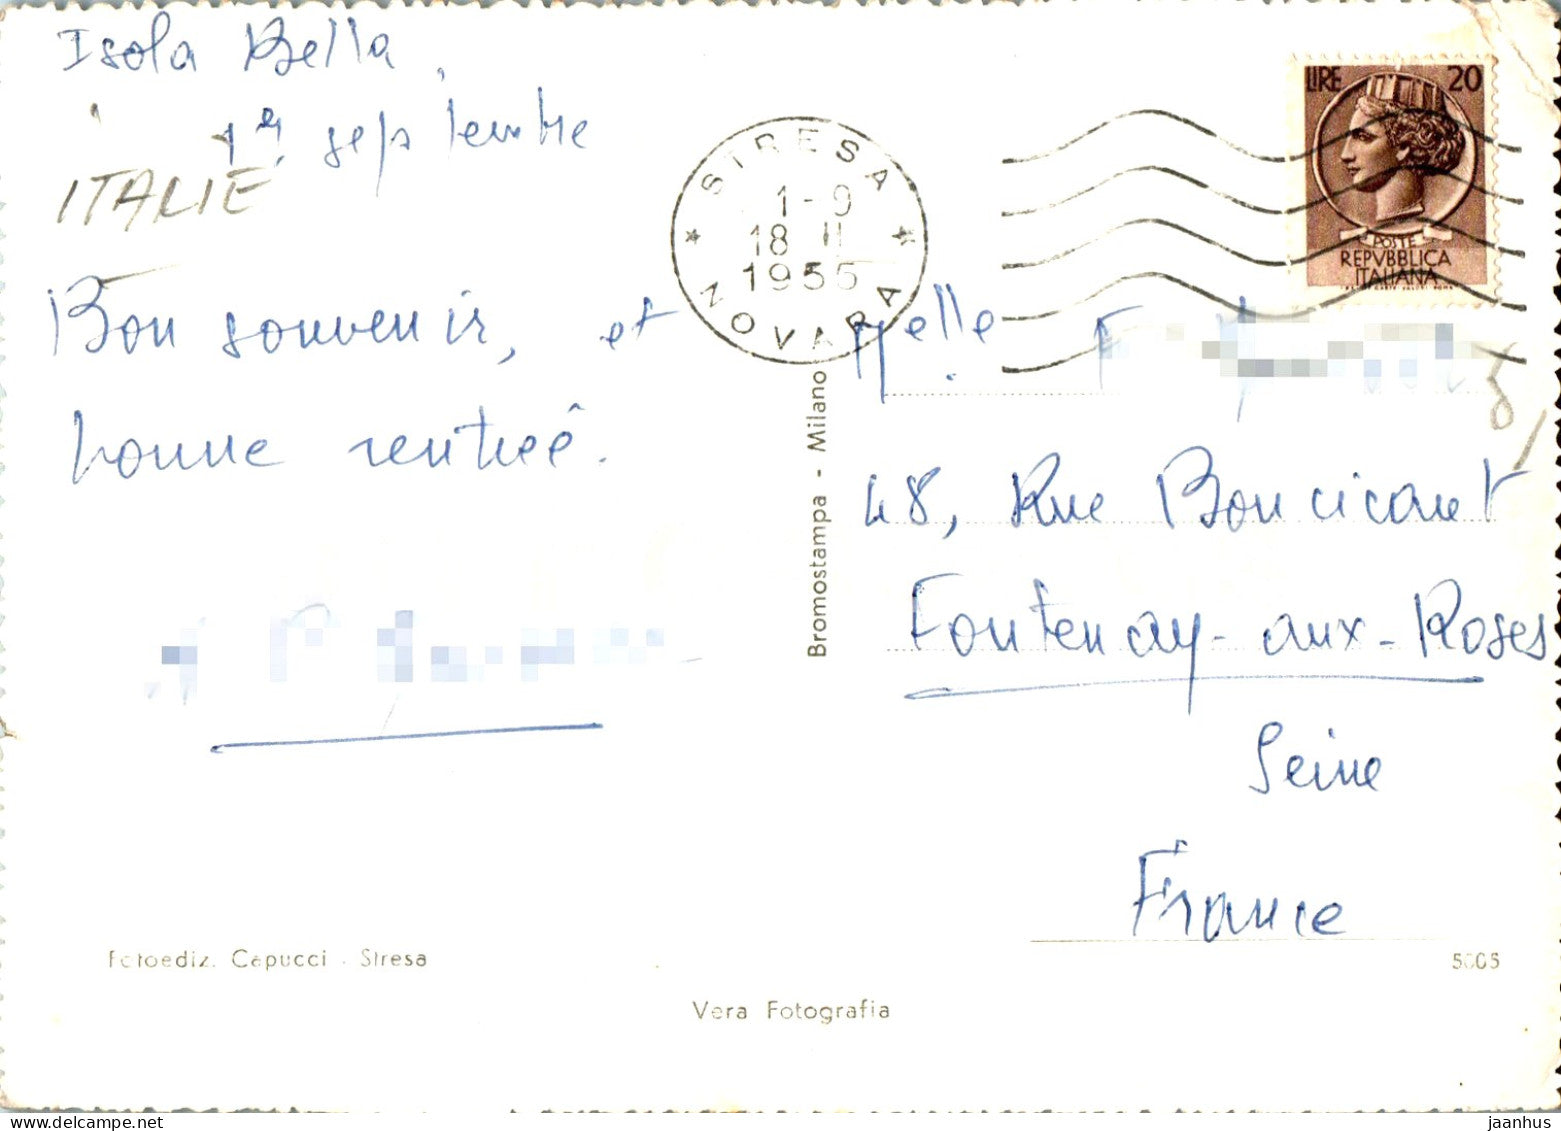 Isola Bella,
1er septembre
ITALIE
Bon souvenir, et
bonne rentrée.
STRESA
1-9
18
1955
NOVARA
LIRE 20
POSTE
REPVBBLICA
ITALIANA
Melle
48, Rue Boucicaut
Fontenay-aux-Roses
Seine
France
Bromostampa - Milano
Fotoediz. Capucci - Stresa
Vera Fotografia
www.jaanhus.ee
jaanhus